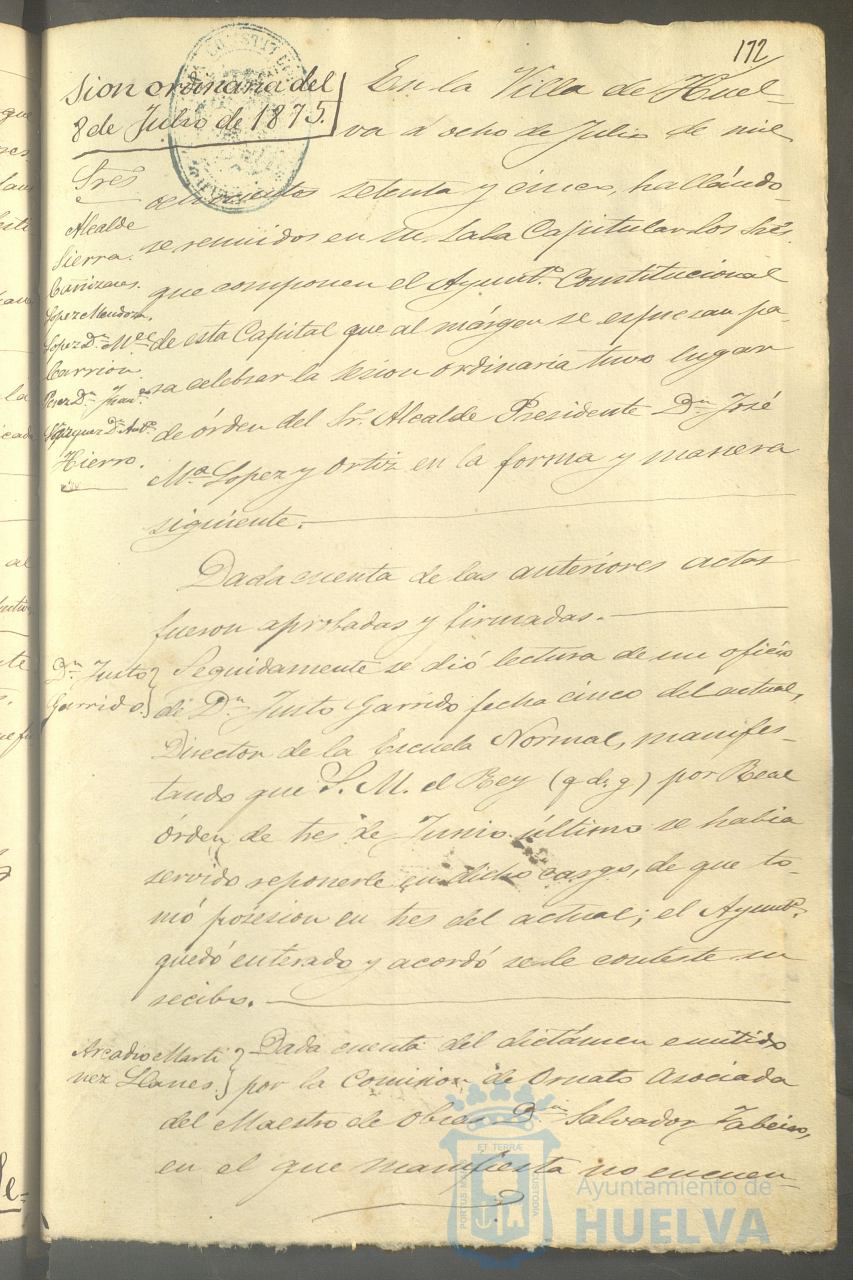 172
Sion ordinaria del
8 de Julio de 1875.
Sres
Alcalde
Sierra.
Cañizares.
Lopez Mendoza.
Lopez Dn. Mel
Carrion.
Perez Dn. Juan.
Vazquez Dn. Anto.
Hierro.
En la Villa de Huel-
va á ocho de Julio de mil
ochocientos setenta y cinco, hallándo-
se reunidos en su Sala Capitular los Sres.
que componen el Ayuntº. Constitucional
de esta Capital que al márgen se espresan pa-
ra celebrar la sesion ordinaria tuvo lugar
de órden del Sr. Alcalde Presidente Dn. José
Mª Lopez y Ortiz en la forma y manera
siguiente.
Dada cuenta de las anteriores actas
fueron aprobadas y firmadas.
Dn. Justo
Garrido.
Seguidamente se dió lectura de un oficio
di Dn. Justo Garrido fecha cinco del actual,
Director de la Escuela Normal, manifes-
tando que S. M. el Rey (q. d. g) por Real
órden de tres de Junio último se habia
servido reponerle en dicho cargo, de que to-
mó posesion en tres del actual; el Ayuntº.
quedó enterado y acordó se le conteste su
recibo.
Arcadio Marti
nez Llanes.
Dada cuenta del dictámen emitido
por la Comision de Ornato asociada
del Maestro de Obras Dn. Salvador
en el que manifiesta no encuen-
PORTUS MARIS ET TERRÆ CUSTODIA
Ayuntamiento de
HUELVA